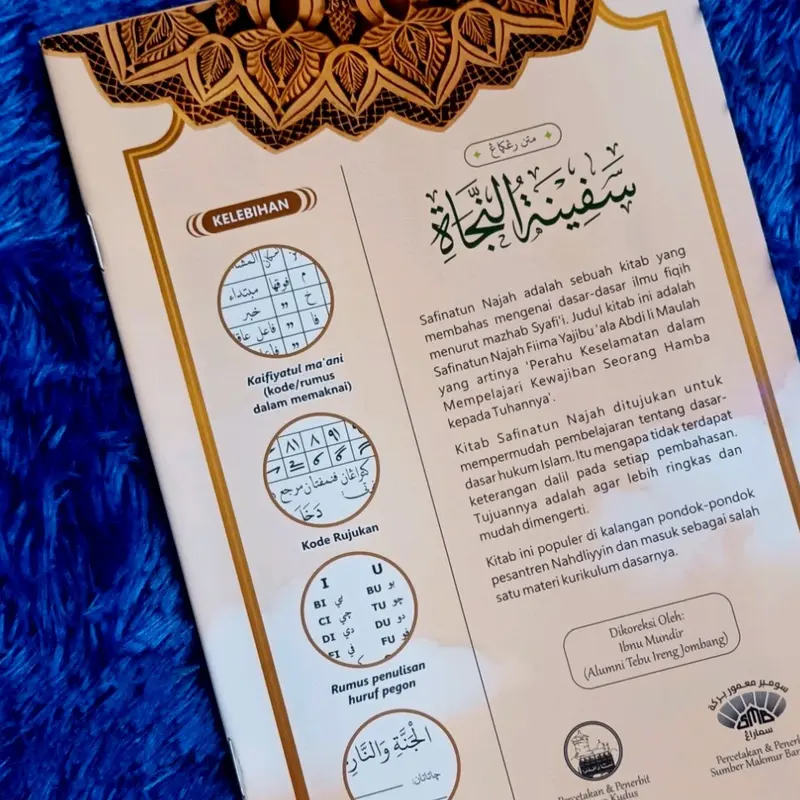 متن رڠكاڠ
سَفِينَةُ النَّجَاةِ
Safinatun Najah adalah sebuah kitab yang
membahas mengenai dasar-dasar ilmu fiqih
menurut mazhab Syafi'i. Judul kitab ini adalah
Safinatun Najah Fiima Yajibu 'ala Abdi li Maulah
yang artinya 'Perahu Keselamatan dalam
Mempelajari Kewajiban Seorang Hamba
kepada Tuhannya'.
Kitab Safinatun Najah ditujukan untuk
mempermudah pembelajaran tentang dasar-
dasar hukum Islam. Itu mengapa tidak terdapat
keterangan dalil pada setiap pembahasan.
Tujuannya adalah agar lebih ringkas dan
mudah dimengerti.
Kitab ini populer di kalangan pondok-pondok
pesantren Nahdliyyin dan masuk sebagai salah
satu materi kurikulum dasarnya.
Dikoreksi Oleh:
Ibnu Mundir
(Alumni Tebu Ireng Jombang)
KELEBIHAN
م فوقها مبتداء
خ " خبر
فا " فاعل
Kaifiyatul ma'ani
(kode/rumus
dalam memaknai)
Kode Rujukan
I U
BI بي BU بو
CI چي TU
DI دي DU دو
FI في FU فو
Rumus penulisan
huruf pegon
الْجَنَّةِ وَالنَّارِ
چاتاتان
Percetakan & Penerbit
Kudus
سومبر معمور بركة
SMB
سماراڠ
Percetakan & Penerbit
Sumber Makmur